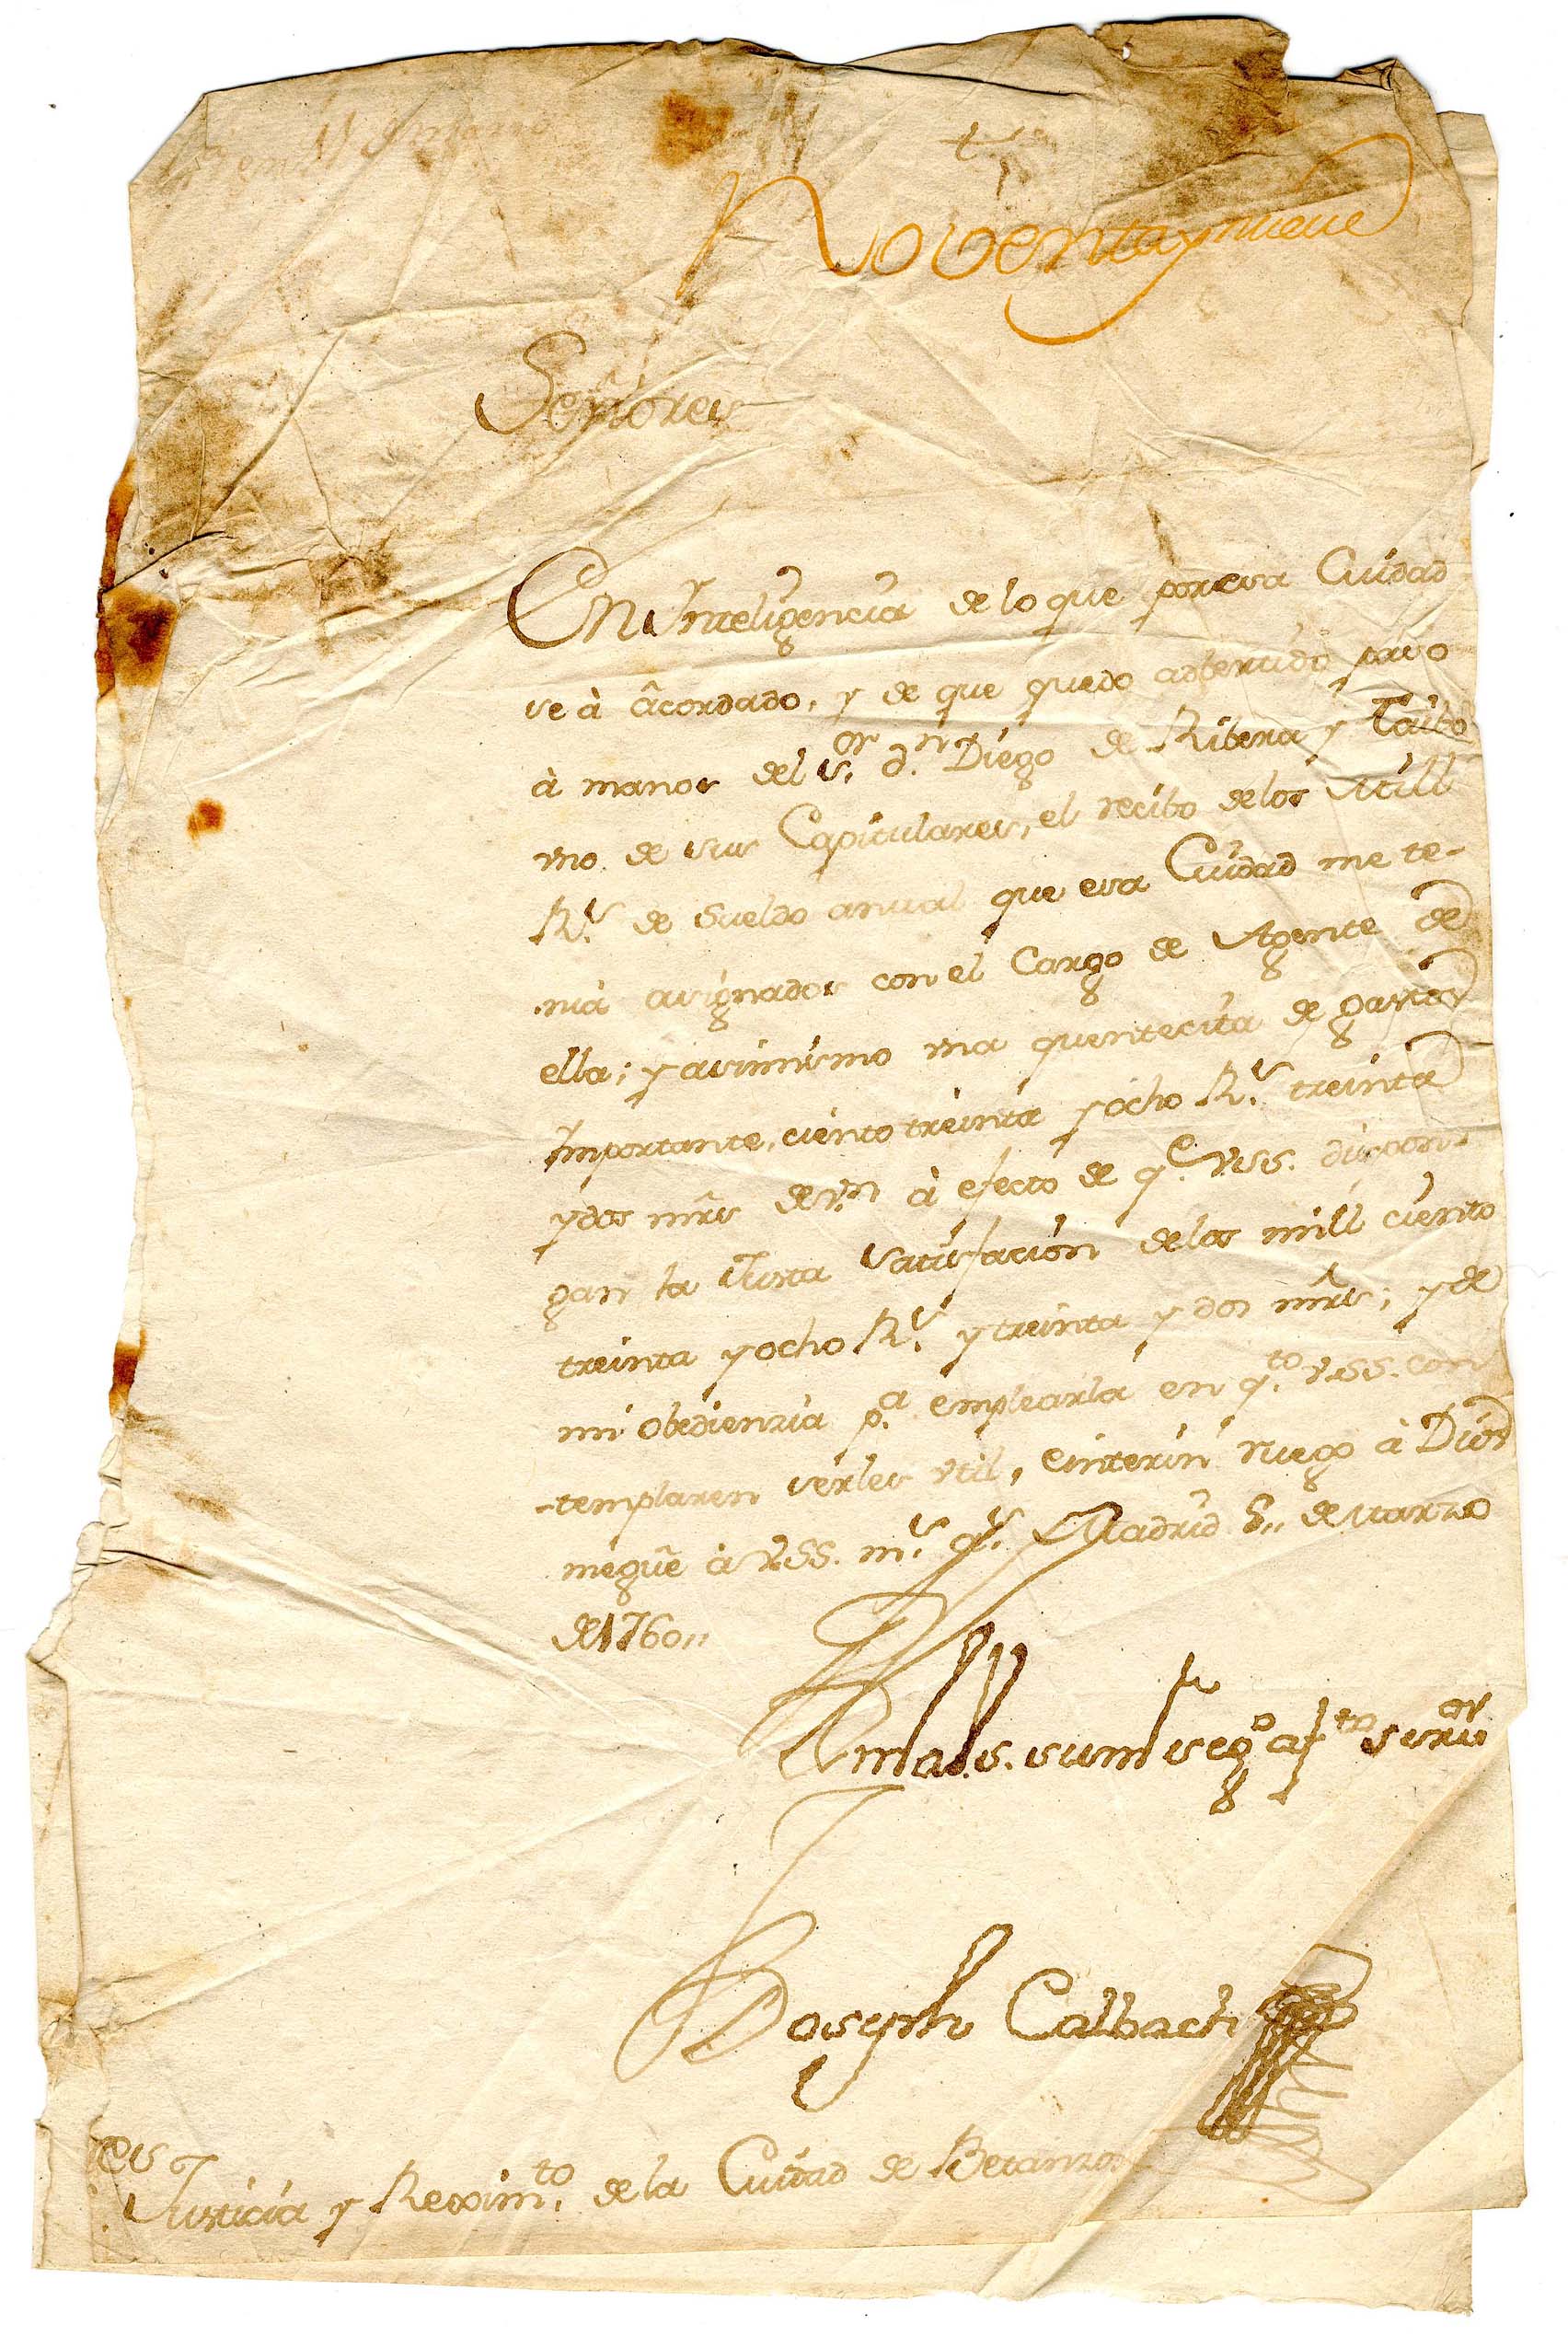 Noventa y nueve
Señores
En Inteligencia de lo que por esa Ciudad
se à acordado, y de que quedo adbertido paso
à manos del S.or d.n Diego de Ribera y Taibo
vno de sus Capitulares, el recibo de los Mill
R.s de Sueldo anual que esa Ciudad me te-
nia asignados con el Cargo de Agente de
ella; y asimismo vna quentecita de gastos
Importante, ciento treinta y ocho R.s treinta
y dos mrs de v.on à efecto de q.e VSS. dispon-
gan la Justa Satisfacion de los mill ciento
treinta y ocho R.s y treinta y dos mrs; y de
mi obedienzia p.a emplearla en q.to VSS. con
-templaren serles vtil, einterin ruego à Dios
megue à VSS. m.s a.s Madrid 8,, de Marzo
de 1760,,
B l m a V.S. su m.s seg.o af.to ser.or
Joseph Calbach
Justicia y Reximi.to de la Ciudad de Betanzos